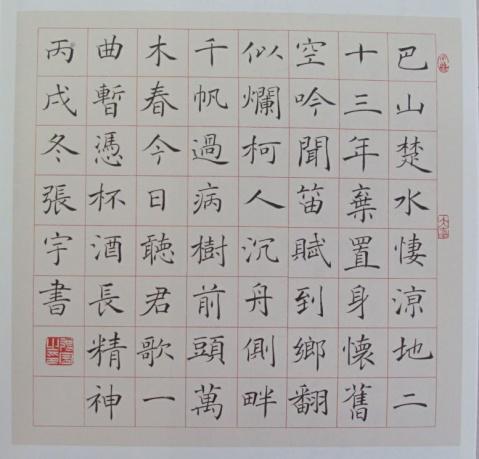 巴山楚水悽涼地二
十三年棄置身懷舊
空吟聞笛賦到鄉翻
似爛柯人沉舟側畔
千帆過病樹前頭萬
木春今日聽君歌一
曲暫憑杯酒長精神
丙戌冬張宇書